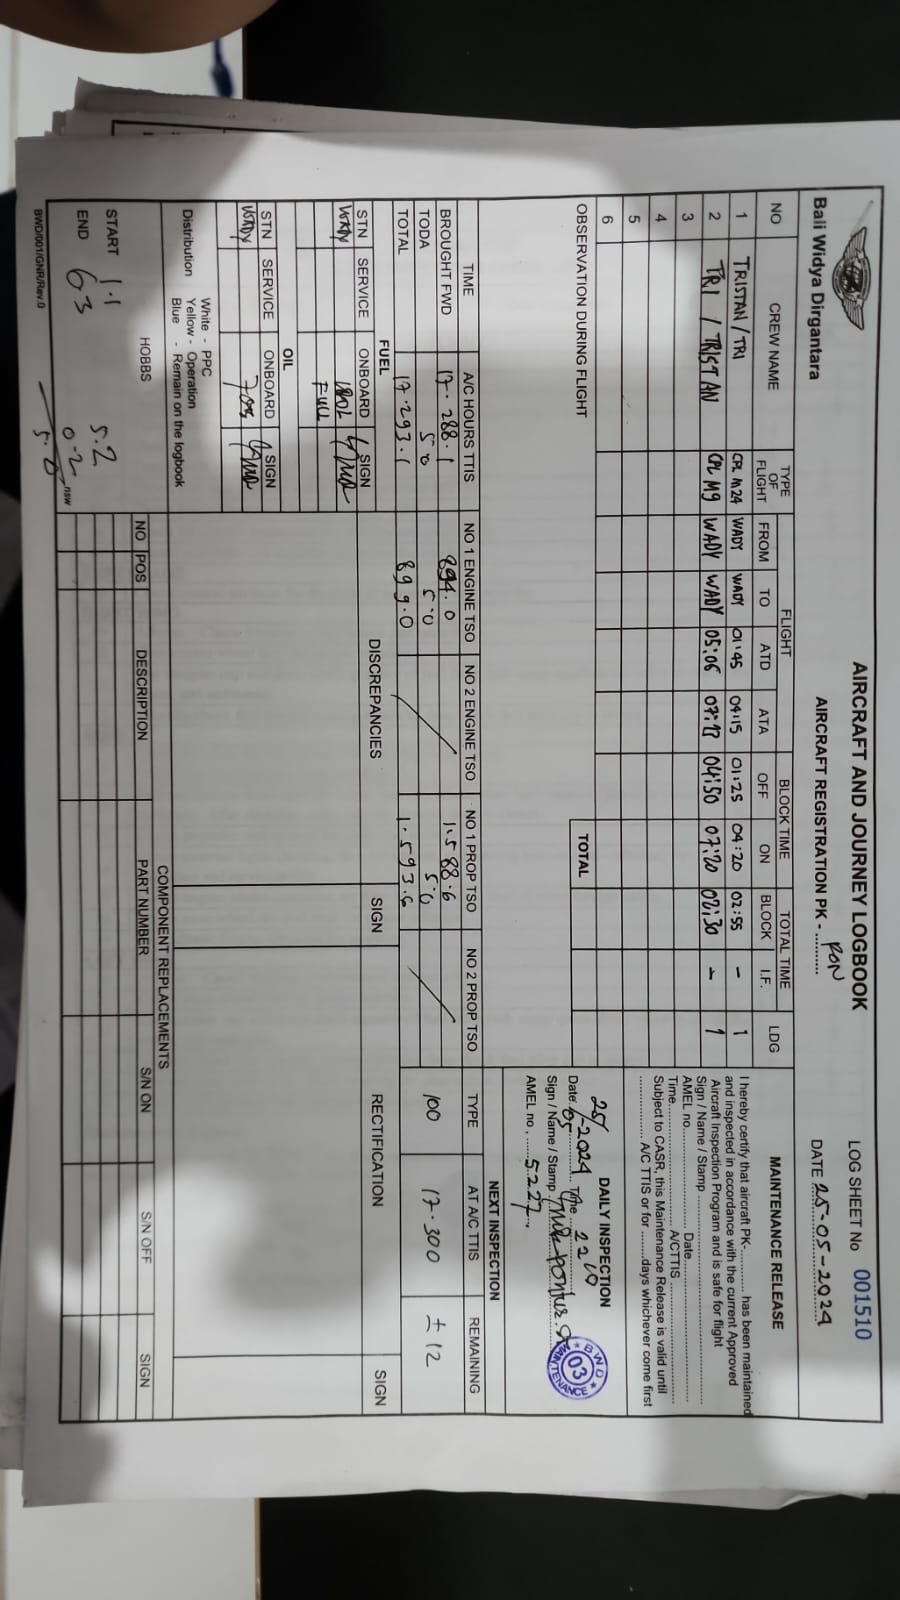 AIRCRAFT AND JOURNEY LOGBOOK
LOG SHEET No 001510
Bali Widya Dirgantara
AIRCRAFT REGISTRATION PK - ..........
DATE 25-05-2024
NO CREW NAME TYPE OF FLIGHT FLIGHT BLOCK TIME TOTAL TIME LDG
FROM TO ATD ATA OFF ON BLOCK I.F.
1 TRISTAN / TRI CPL M24 WADY WADY 01:45 04:15 01:25 04:20 02:55 - 1
2 TRI / TRISTAN CPL M9 WADY WADY 05:06 04:50 07:20 02:30 - 1
3
4
5
6
TOTAL
OBSERVATION DURING FLIGHT
MAINTENANCE RELEASE
I hereby certify that aircraft PK-............. has been maintained
and inspected in accordance with the current Approved
Aircraft Inspection Program and is safe for flight
Sign / Name / Stamp
AMEL no. Date
Time A/CTTIS
Subject to CASR, this Maintenance Release is valid until
A/C TTIS or for .........days whichever come first
DAILY INSPECTION
Date: 25/05-2024 Time
Sign / Name / Stamp
AMEL no. 5227
BWD
03
MAINTENANCE
TIME A/C HOURS TTIS NO 1 ENGINE TSO NO 2 ENGINE TSO NO 1 PROP TSO NO 2 PROP TSO
BROUGHT FWD 17.288.1 894.0 1.588.6
TODA 5.0 5.0 5.0
TOTAL 17.293.1 899.0 1.593.6
NEXT INSPECTION
TYPE AT A/C TTIS REMAINING
100 17.300 ± 12
FUEL
STN SERVICE ONBOARD SIGN
WADY 180L
FULL
OIL
STN SERVICE ONBOARD SIGN
WADY
DISCREPANCIES SIGN RECTIFICATION SIGN
Distribution White - PPC
Yellow - Operation
Blue - Remain on the logbook
COMPONENT REPLACEMENTS
NO POS DESCRIPTION PART NUMBER S/N ON S/N OFF SIGN
HOBBS
START 1.1 5.2
END 6.3 0.2
5.0
BWD/001/GNR/Rev.0